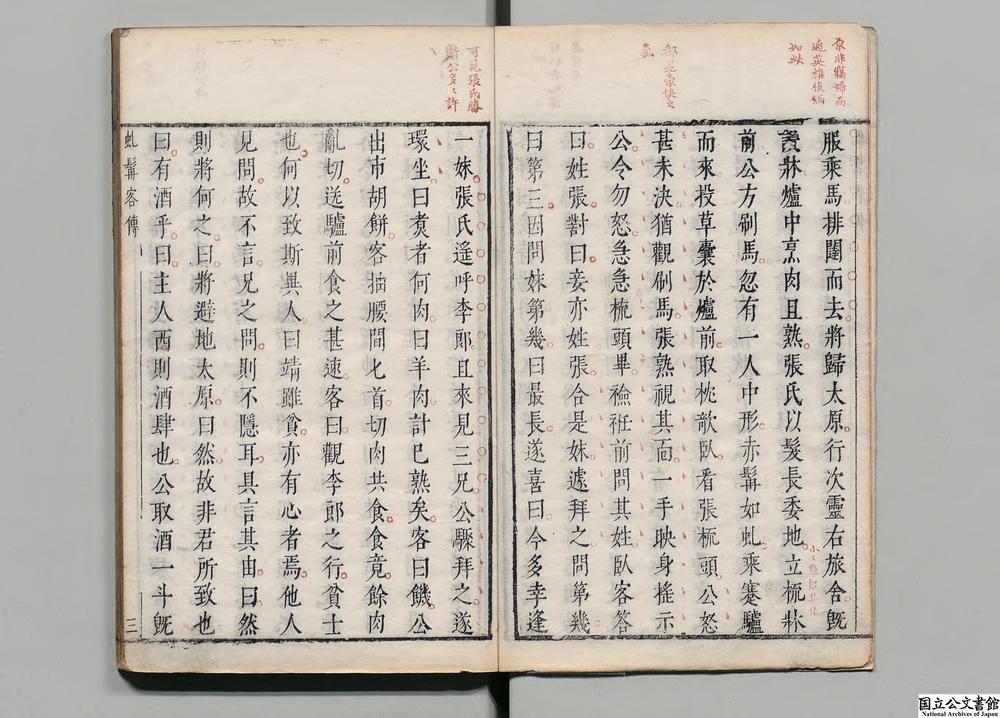 原非竊婦而
逃英雄俊物
如此
服乘馬排闥而去將歸太原行次靈右旅舍旣
設牀爐中烹肉且熟張氏以髮長委地立梳牀
前公方刷馬忽有一人中形赤髯如虬乘蹇驢
而來投草囊於爐前取枕欹臥看張梳頭公怒
甚未決猶觀刷馬張熟視其面一手映身搖示
公令勿怒急急梳頭畢襝衽前問其姓臥客答
曰姓張對曰妾亦姓張合是妹遽拜之問第幾
曰第三因問妹第幾曰最長遂喜曰今多幸逢
都是豪俠之
氣
可見張氏勝
衛公多多許
一妹張氏遙呼李郎且來見三兄公驟拜之遂
環坐曰煑者何肉曰羊肉計已熟矣客曰饑公
出市胡餅客抽腰間匕首切肉共食食竟餘肉
亂切送驢前食之甚速客曰觀李郎之行貧士
也何以致斯異人曰靖雖貧亦有心者焉他人
見問故不言兄之問則不隱耳具言其由曰然
則將何之曰將避地太原曰然故非君所致也
曰有酒乎曰主人西則酒肆也公取酒一斗旣
虬髯客傳
三
国立公文書館
National Archives of Japan